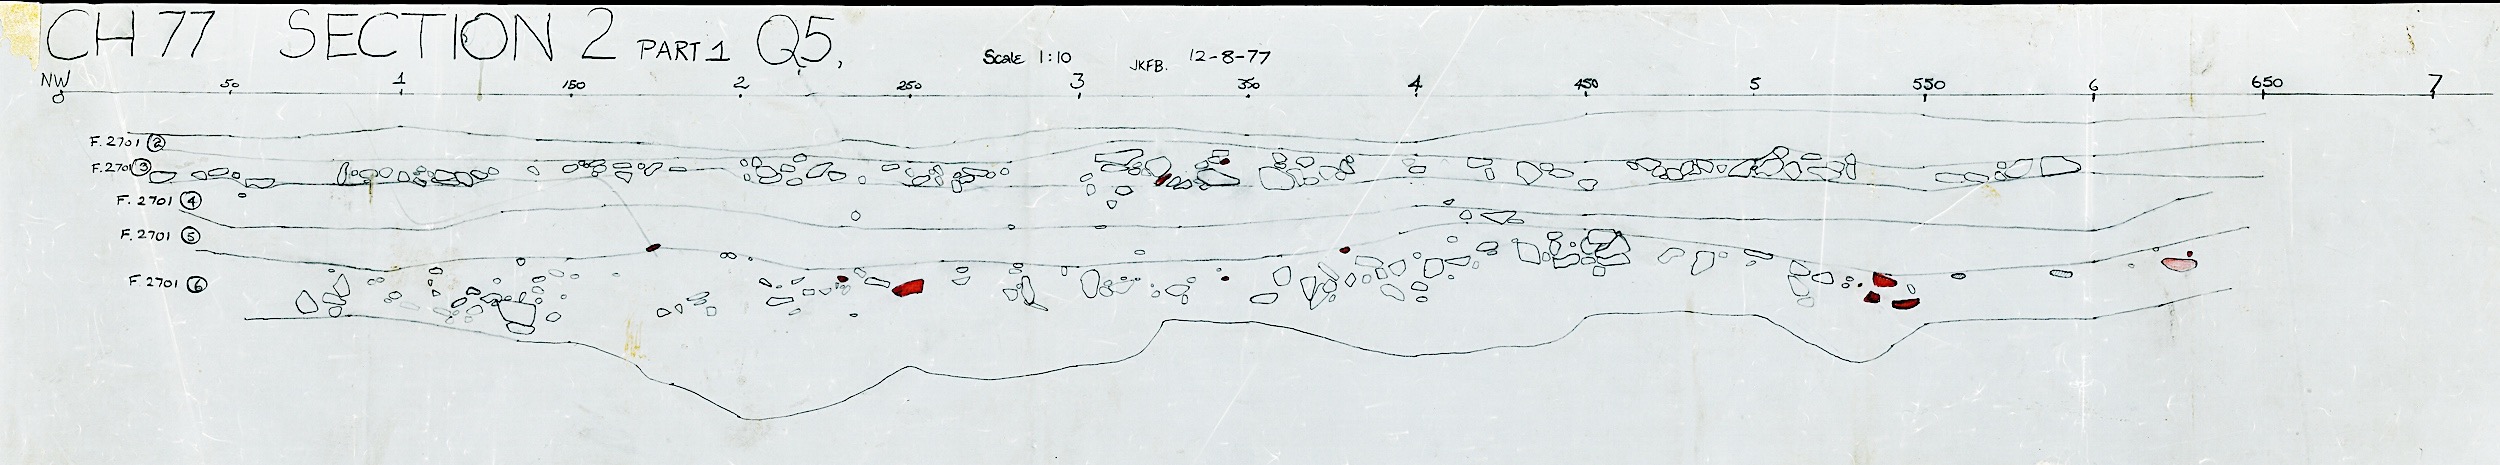 CH 77 SECTION 2 PART 1 Q5,
Scale 1:10 JKFB. 12-8-77
NW
0 50 1 150 2 250 3 350 4 450 5 550 6 650 7
F. 2701 ②
F. 2701 ③
F. 2701 ④
F. 2701 ⑤
F. 2701 ⑥